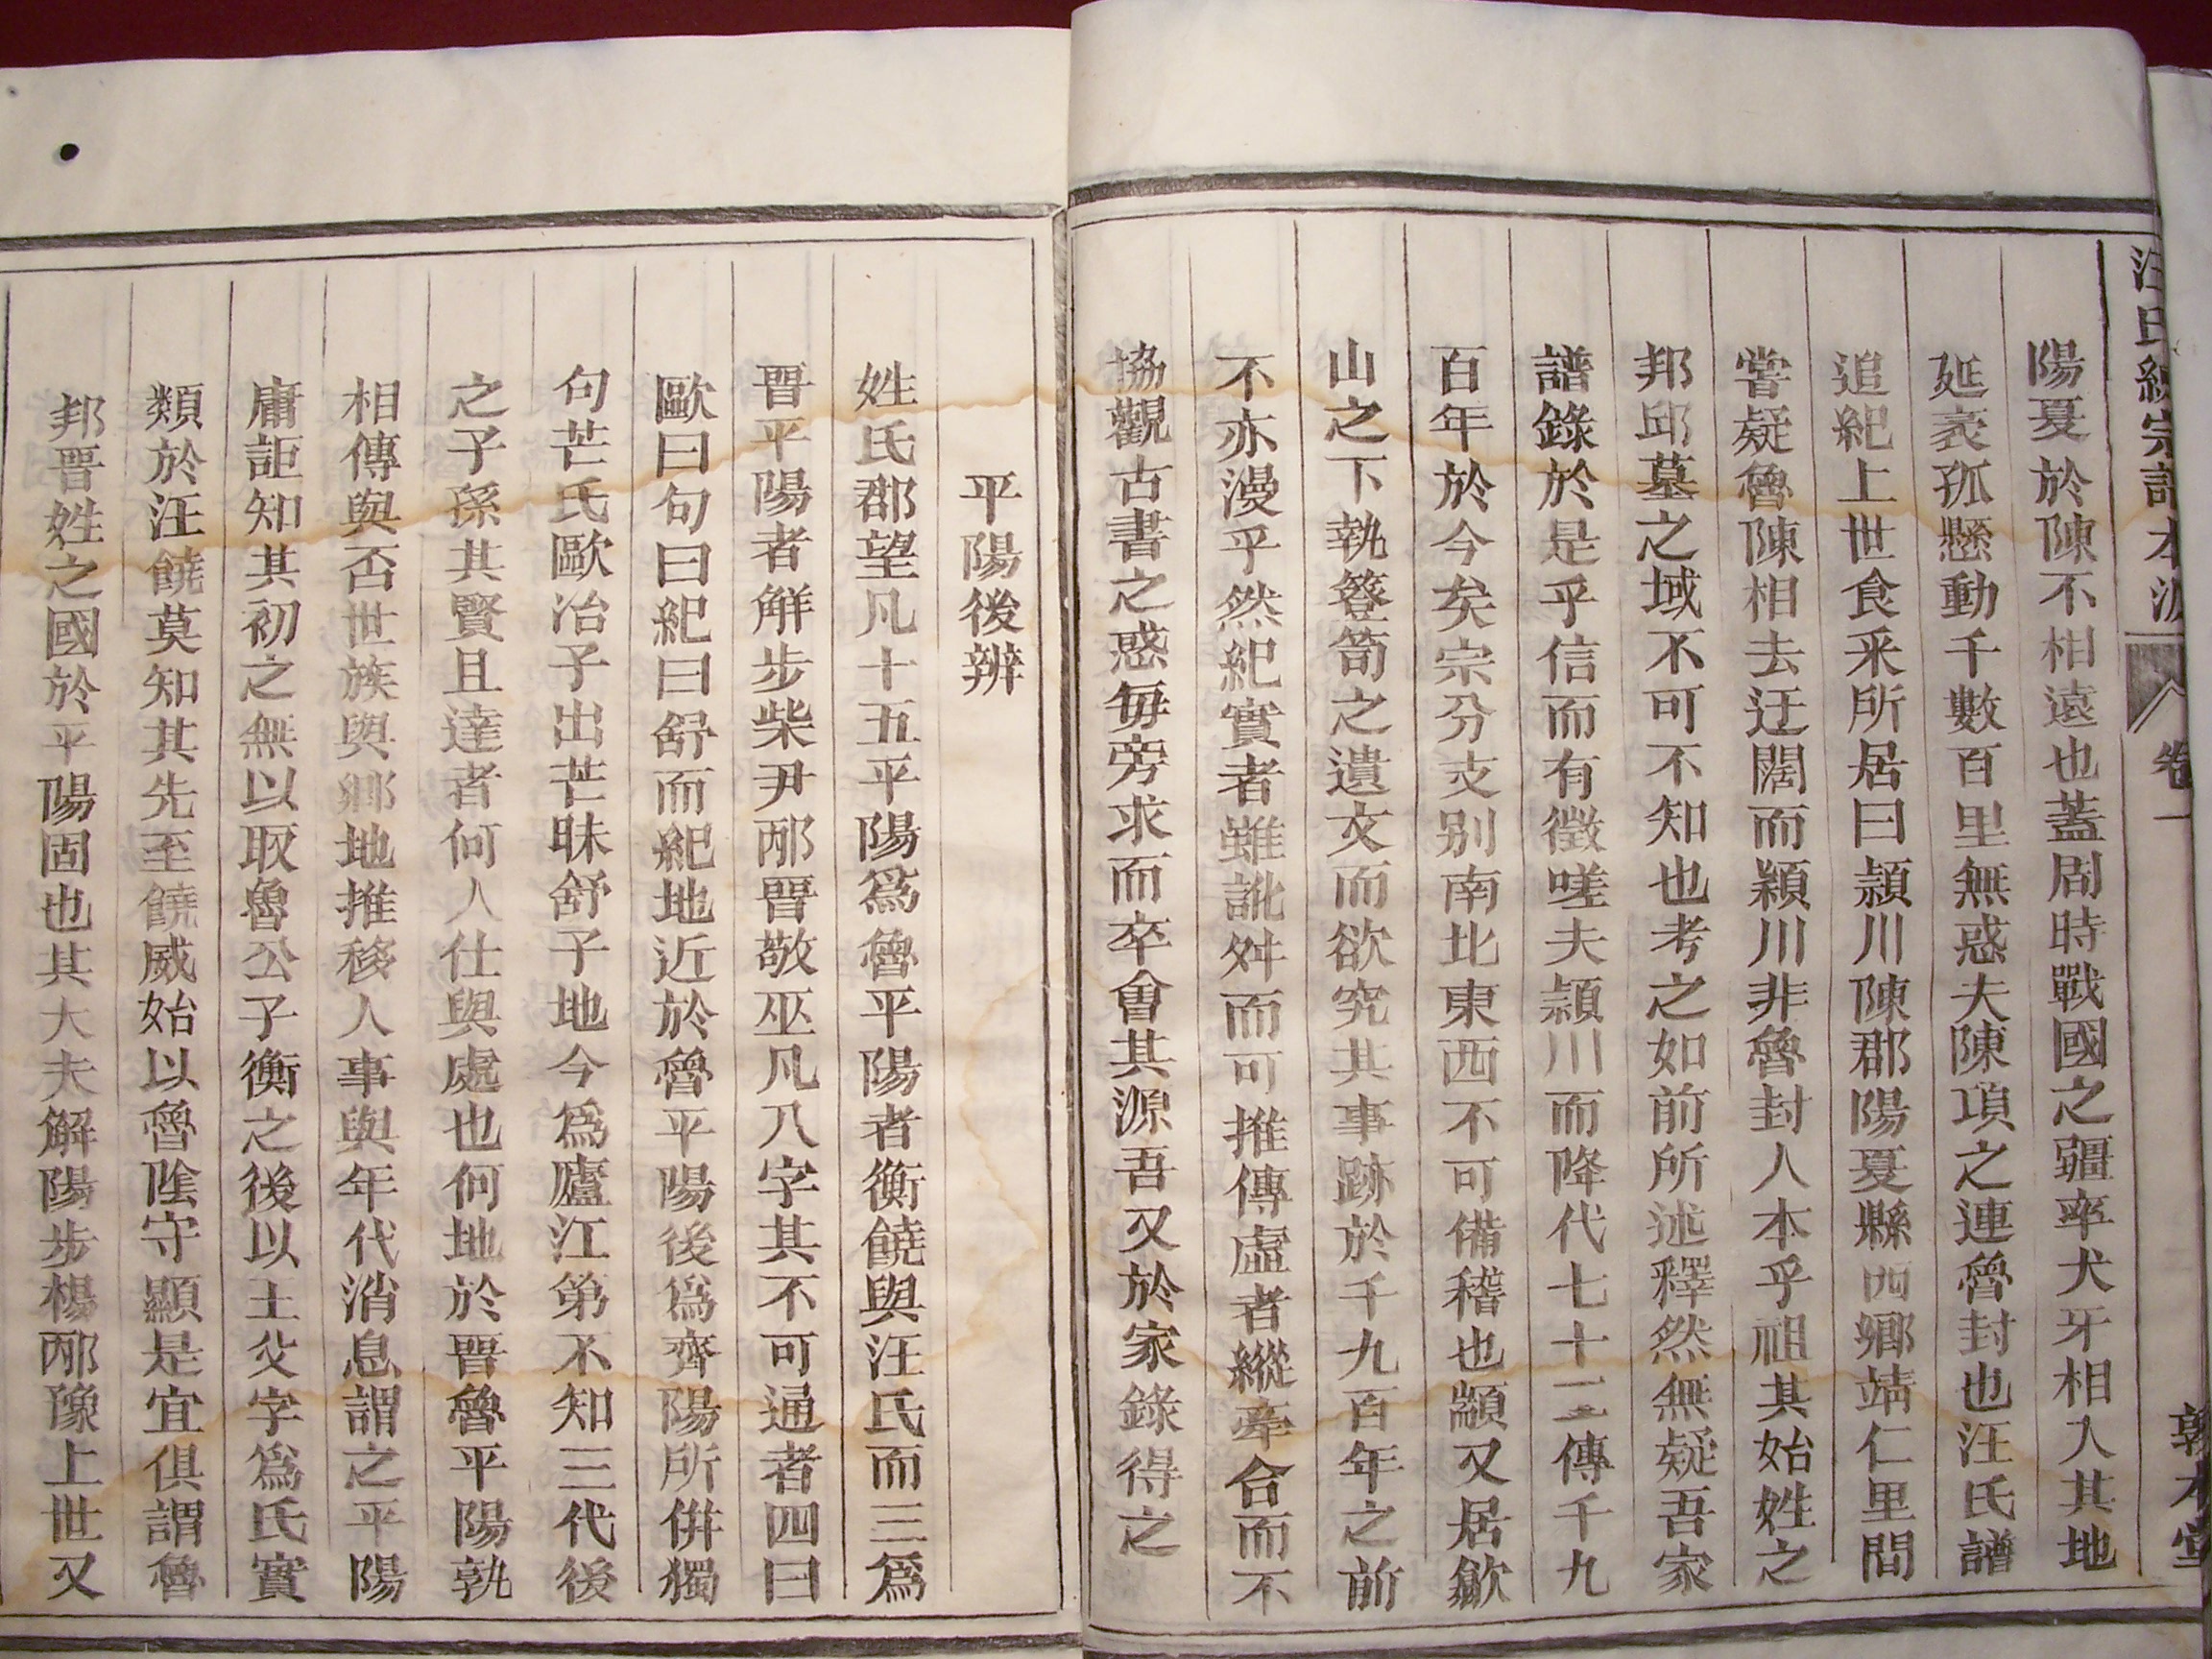 汪氏統宗譜本源
卷一
敦本堂
陽夏於陳不相遠也蓋周時戰國之疆率犬牙相入其地
延袤孤懸動千數百里無惑夫陳項之連魯封也汪氏譜
追紀上世食采所居曰潁川陳郡陽夏縣西鄉靖仁里間
嘗疑魯陳相去迂闊而潁川非魯封人本乎祖其始姓之
邦邱墓之域不可不知也考之如前所述釋然無疑吾家
譜錄於是乎信而有徵嗟夫潁川而降代七十三傳千九
百年於今矣宗分支別南北東西不可備稽也顓又居歙
山之下執簦笥之遺文而欲究其事跡於千九百年之前
不亦漫乎然紀實者雖訛舛而可推傳虛者縱牽合而不
協觀古書之惑每旁求而卒會其源吾又於家錄得之
平陽後辨
姓氏郡望凡十五平陽爲魯平陽者衡饒與汪氏而三爲
晋平陽者解步柴尹邴晋敬巫凡八字其不可通者四曰
歐曰句曰紀曰舒而紀地近於魯平陽後爲齊陽所併獨
句芒氏歐冶子出芒昧舒子地今爲廬江第不知三代後
之子孫其賢且達者何人仕與處也何地於晋魯平陽孰
相傳與否世族與鄉地推移人事與年代消息謂之平陽
庸詎知其初之無以取魯公子衡之後以王父字爲氏實
類於汪饒莫知其先至饒威始以魯陰守顯是宜俱謂魯
邦晋姓之國於平陽固也其大夫解陽步楊邴豫上世又